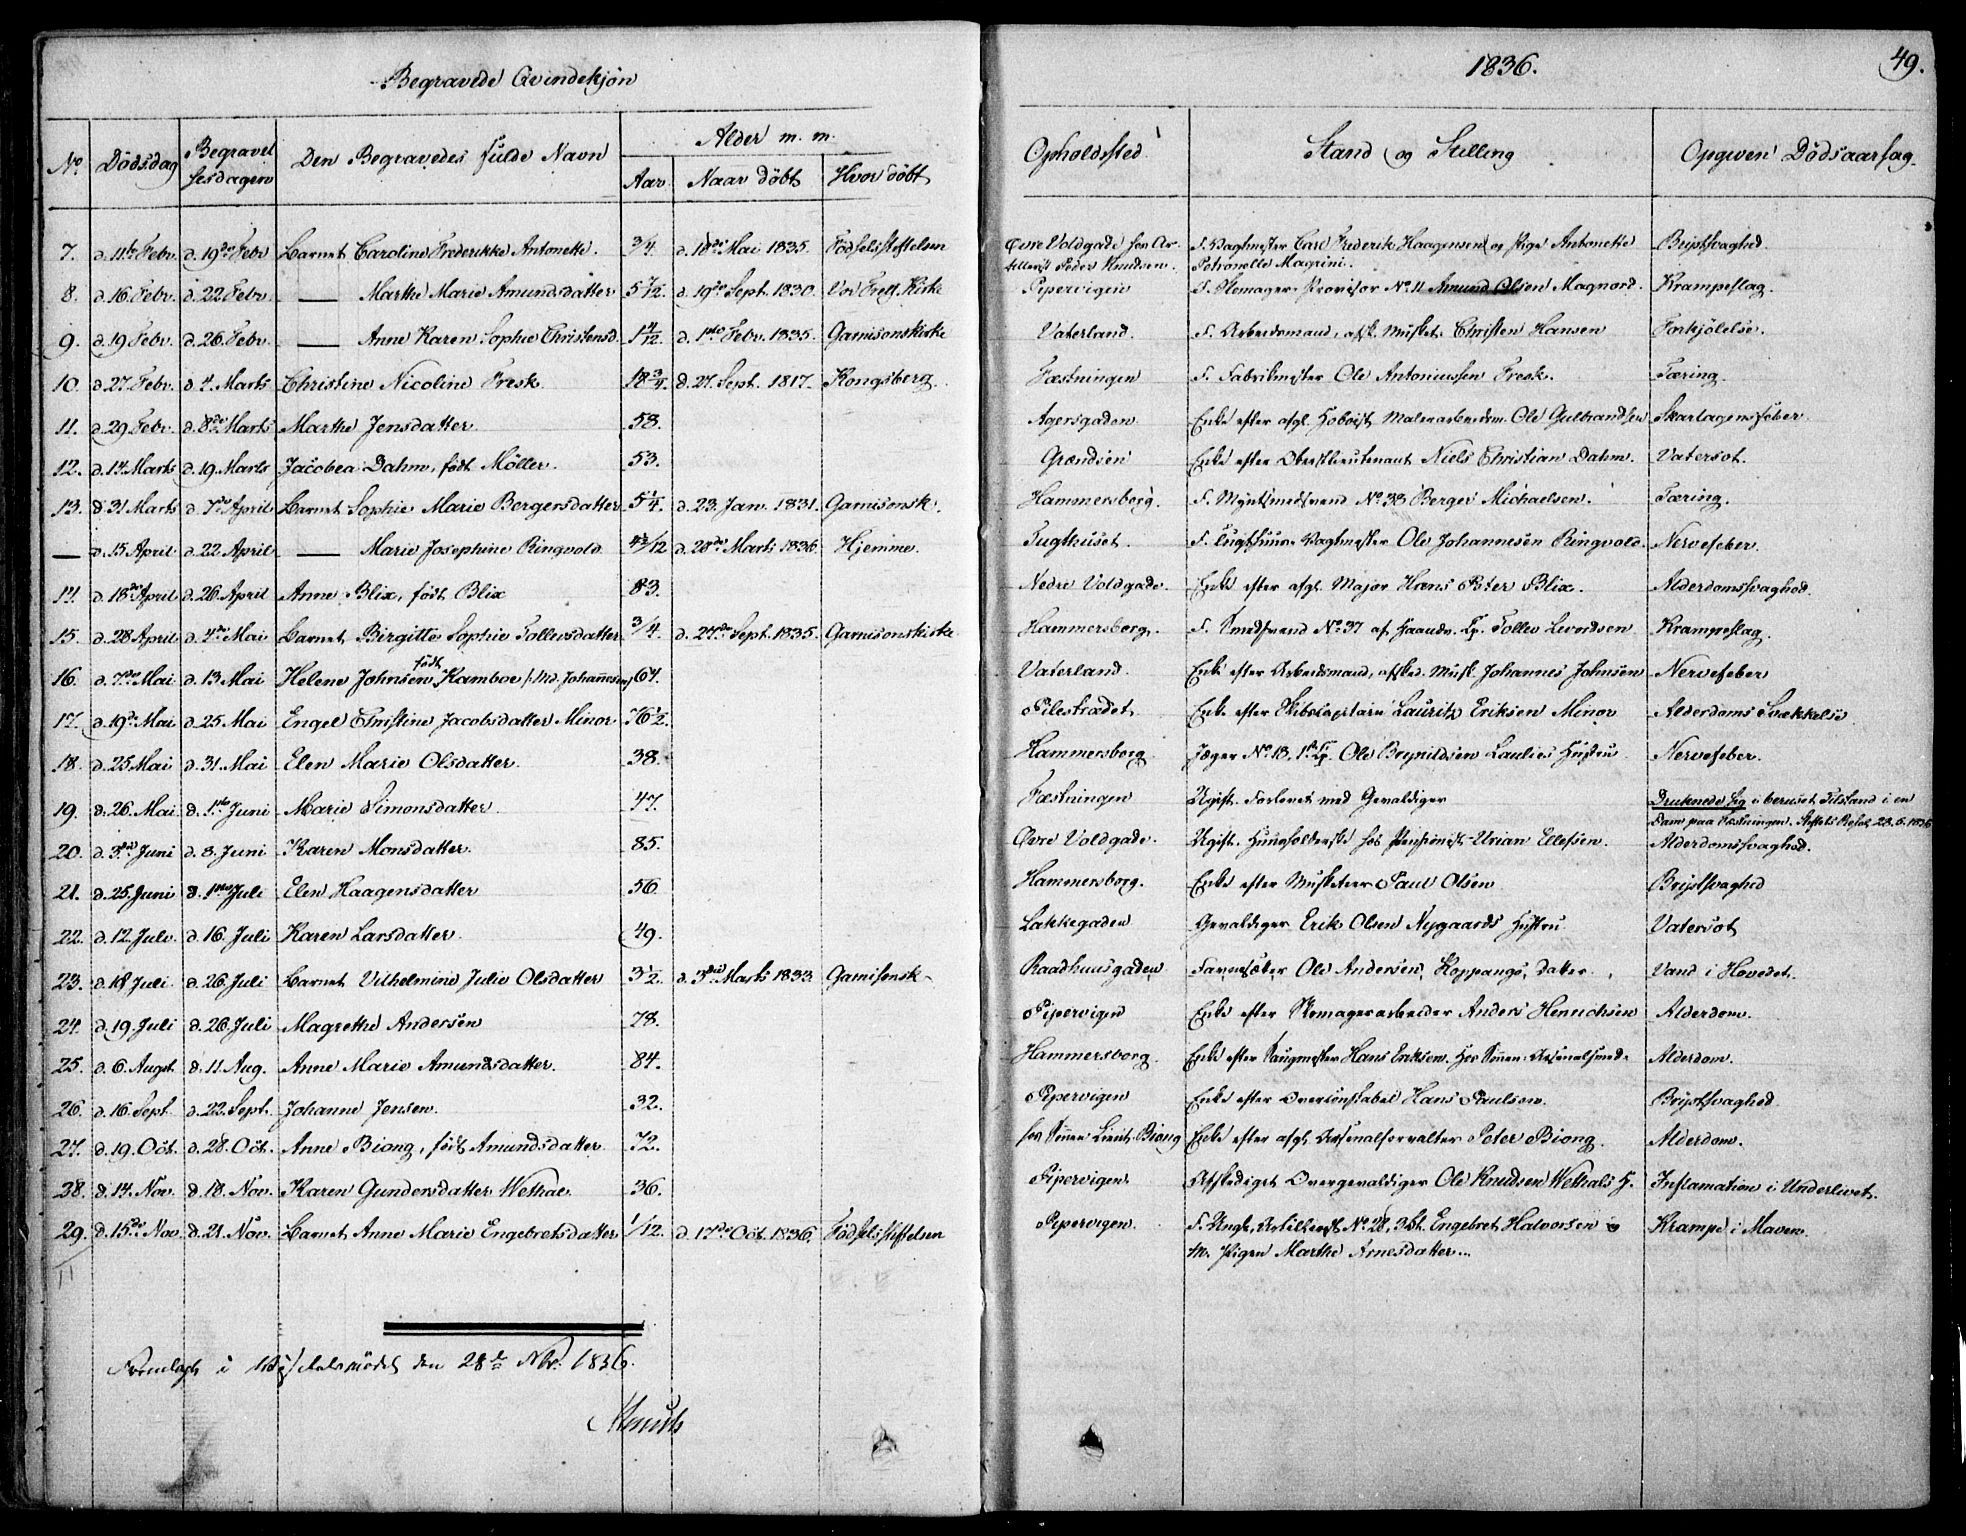 Begravede Qvindekjøn
1836.
49.
No Dødsdag Begravelsesdagen Den Begravedes fulde Navn Alder m. m. Aar Naar døbt Hvor døbt Opholdssted Stand og Stilling Opgiven Dødsaarsag
7. d. 11te Febr. d. 19de Febr Barnet Caroline Frederikke Antonette. 3/4. d. 18de Mai 1835. Fødselsstiftelsen Øvre Voldgade hos Ar- F. Vagtmester Carl Frederik Haagensen og Pige Antonette Brystsvaghed.
tillerist Peder Knudsen. Petronelle Magrini.
8. d. 16 Febr. d. 22 Febr. — Marthe Marie Amundsdatter 5 5/12. d. 19de Sept. 1830. Vor Frels. Kirke Pipervigen F. Skomager, Provisor No 11 Amund Olsen Magnord. Krampeslag.
9. d. 19 Febr. d. 26. Febr. — Anne Karen Sophie Christensd. 1 4/12 d. 1ste Febr. 1835. Garnisonskirke Vaterland. F. Arbeidsmand, afsk. Musket. Christen Hansen Forkjølelse.
10. d. 27. Febr. d. 4. Marts Christine Nicoline Fresk. 18 3/4. d. 27. Sept. 1817. Kongsberg. Fæstningen F. Fabrikmester Ole Antoniussen Fresk. Tæring.
11. d. 29 Febr. d. 8de Marts Marthe Jensdatter. 58. Agersgaden Enke efter afgl. Hoboist Malerarbeidsm. Ole Gulbrandsen Skarlagensfeber
12. d. 14. Marts d. 19. Marts Jacobea Dahm, født Møller. 53. Grændsen Enke efter Oberstlieutenant Niels Christian Dahm. Vatersot.
13. d. 31 Marts d. 7de April Barnet Sophie Marie Bergersdatter 5 1/4. d. 23. Jan. 1831. Garnisonsk. Hammersborg. F. Myntsmedsvend No 38 Berger Michaelsen. Tæring.
— d. 15 April d. 22 April — Marie Josephine Ringvold d. 28de Marts 1836 Hjemme. Tugthuset. F. Tugthuus-Vagtmester Ole Johannesen Ringvold. Nervefeber.
14. d. 18de April d. 26. April Anne Blix, født Blix 83. Nedre Voldgade. Enke efter afgl. Major Hans Peter Blix. Alderdomssvaghed.
15. d. 28 April d. 4de Mai Barnet Birgitte Sophie Tollevsdatter 3/4. d. 27de Sept. 1835. Garnisonskirke Hammersborg. F. Smedsvend No 37 af Haandv. Cp. Tollev Levordsen Krampeslag.
16. d. 7de Mai d. 13 Mai Helene Johnsen født Kamboe /: Md. Johannesen 64. Vaterland. Enke efter Arbeidsmand, afsked. Musk. Johannes Johnsen Nervefeber
17. d. 19de Mai d. 25 Mai Engel Christine Jacobsdatter Minor 76 1/2. Pilestrædet. Enke efter Skibscapitain Lauritz Eriksen Minor Alderdoms Svækkelse
18. d. 25 Mai d. 31. Mai Elen Marie Olsdatter. 38. Hammersborg. Jæger No 13, 1ste Cp. Ole Brynildsen Laulies Hustru Nervefeber.
19. d. 26. Mai d. 1ste Juni Marie Simonsdatter. 47. Fæstningen Ugift. Forlovet med Gevaldiger Druknede sig i beruset Tilstand i en
Dam paa Fæstningen. Stiftets Resol. 28. 5. 1836
20. d. 3die Juni d. 8. Juni Karen Monsdatter. 85. Øvre Voldgade. Ugift. Huusholderske hos Pensionist Urian Ellefsen. Alderdomssvaghed.
21. d. 25. Juni d. 1ste Juli Elen Haagensdatter 56 Hammersborg. Enke efter Musketeer Paul Olsen Brystsvaghed
22. d. 12. Juli. d. 16. Juli Karen Larsdatter. 49. Lakkegaden Gevaldiger Erik Olsen Nygaards Hustru Vatersot
23. d. 18 Juli d. 26. Juli Barnet Vilhelmine Julie Olsdatter 3 1/2. d. 3die Marts 1833. Garnisonsk. Raadhuusgaden Ole Andersen Koppangs Datter. Vand i Hovedet.
24. d. 19. Juli d. 26. Juli Magrethe Andersen 78. Pipervigen Enke efter Skomagerarbeider Anders Henrichsen Alderdom.
25. d. 6. Augst d. 11. Aug. Anne Marie Amundsdatter. 84. Hammersborg. Enke efter Saugmester Hans Eriksen. Hos Sønnen Arsenalsmed. Alderdom.
26. d. 16. Sept d. 22. Sept. Johanne Jensen. 32. Pipervigen Enke efter Overconstabel Hans Paulsen. Brystsvaghed
27. d. 19. Oct. d. 28. Oct. Anne Biong, født Amundsdatter 72. hos Sønnen Lieut. Biong Enke efter afgl. Arsenalforvalter Peter Biong. Alderdom.
38. d. 14. Nov. d. 18. Nov. Karen Gundersdatter Wethal. 36. Pipervigen. Afskediget Overgevaldiger Ole Knudsen Wethals H. Inflamation i Underlivet.
29. d. 15de Nov. d. 21. Nov. Barnet Anne Marie Engebretsdatter 1/12. d. 17de Oct. 1836. Fødselsstiftelsen Pipervigen. F. Ungk. Artillerist No 28, Engebret Halvorsen og Krampe i Maven.
Pigen Marthe Arnesdatter.
Fremlagt i den 28de Nbr. 1836.
Munch